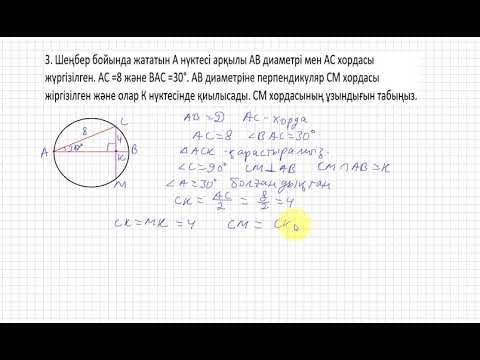 3. Шеңбер бойында жататын А нүктесі арқылы АВ диаметрі мен АС хордасы
жүргізілген. АС =8 және ВАС =30°. АВ диаметріне перпендикуляр СМ хордасы
жіргізілген және олар К нүктесінде қиылысады. СМ хордасының ұзындығын табыңыз.
AB = D AC - хорда
AC = 8 ∠BAC = 30°
△ACK - қарастырамыз.
∠C = 90° CM ⊥ AB CM ∩ AB = K
∠A = 30° болғандықтан
CK = AC/2 = 8/2 = 4
CK = MK = 4 CM = CK
C
8
4
A
30°
K
B
M